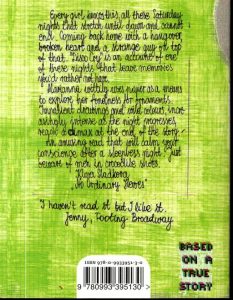 Every girl knows this, all these Saturday
nights that stretch until dawn and don't
end. Coming back home with a hangover
broken heart and a strange guy on top
of that. "Disco Cry" is an account of one
of these nights that leave memories
you'd rather not have.
Marianna wittily uses paper as a means
to explore her fondness for ornaments.
Transition drawings and loud colours, most
intense as the night progresses,
reach a climax at the end of the story –
An amusing read that will calm your
conscience after a sleepless night. Just
beware of men in crocodile shoes.
"In Ordinary Shoes"
I haven't read it but I like it.
Jenny, Tooting Broadway
BASED
ON A
TRUE
STORY
ISBN 978-0-9933951-3-0
9 780993 395130 >